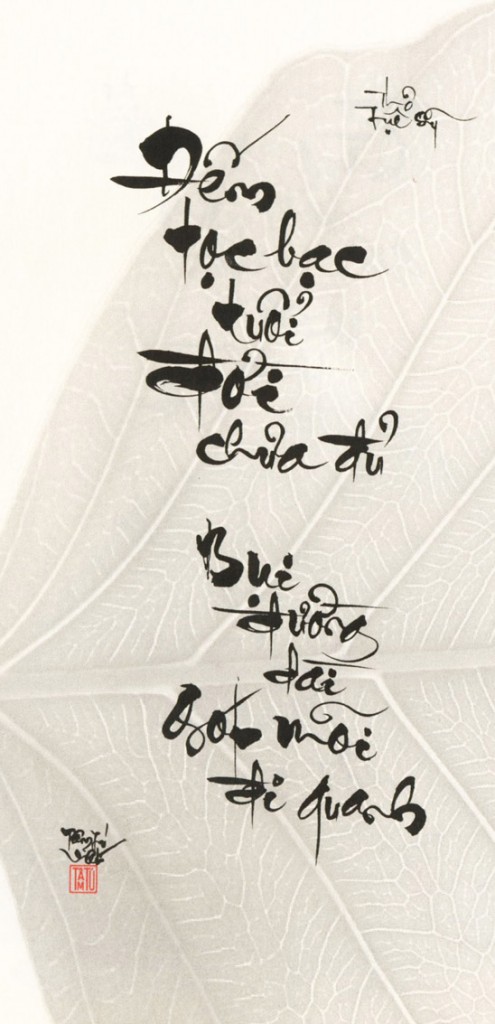 Thơ
Tuệ Sỹ
Đếm
tọc bạc
tuổi
đời
chưa đủ
Bụi
đường
dài
gót mỏi
đi quanh
TAM TU